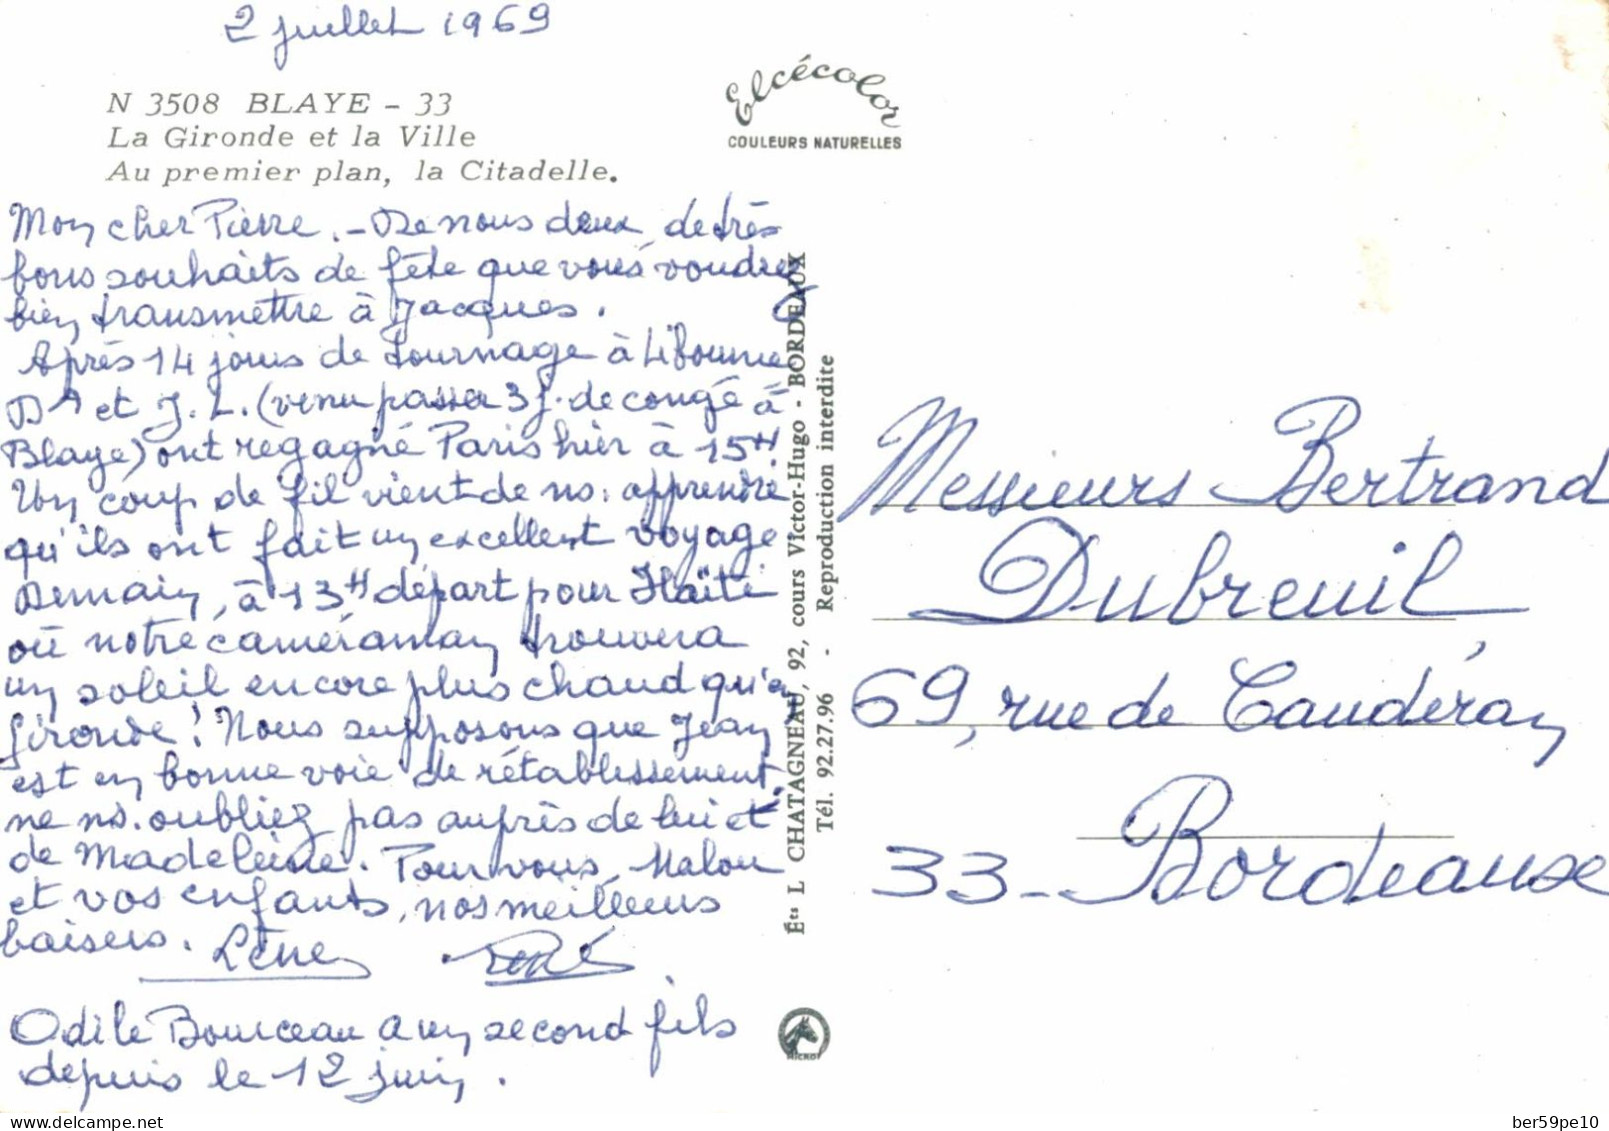 2 juillet 1969
N 3508 BLAYE - 33
La Gironde et la Ville
Au premier plan, la Citadelle.
Elcécolor
COULEURS NATURELLES
Mon cher Pierre. - De nous deux, de très
bons souhaits de fête que vous voudrez
bien transmettre à Jacques.
Après 14 jours de tournage à Libourne
et J. L. (venu passer 3 j. de congé à
Blaye) ont regagné Paris hier à 15H.
Un coup de fil vient de ns. apprendre
qu'ils ont fait un excellent voyage
Demain, à 13H départ pour Haïti
où notre caméraman trouvera
un soleil encore plus chaud qu'en
Gironde! Nous supposons que Jean
est en bonne voie de rétablissement.
ne ns. oubliez pas auprès de lui et
de Madeleine. Pour vous, Malou
et vos enfants, nos meilleurs
baisers. Lène René
Odile Bourceau a un second fils
depuis le 12 juin.
Éts L CHATAGNEAU, 92, cours Victor-Hugo - BORDEAUX
Tél. 92.27.96 - Reproduction interdite
MICRO
Messieurs Bertrand
Dubreuil
69, rue de Caudéran
33 - Bordeaux
delcampe.net
ber59pe10